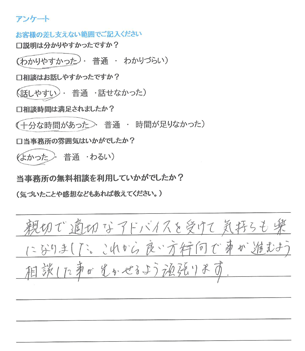 アンケート
お客様の差し支えない範囲でご記入ください
□説明は分かりやすかったですか？
わかりやすかった ・ 普通 ・ わかりづらい）
□相談はお話しやすかったですか？
話しやすい ・ 普通 ・話せなかった）
□相談時間は満足されましたか？
十分な時間があった ・ 普通 ・ 時間が足りなかった）
□当事務所の雰囲気はいかがでしたか？
よかった ・ 普通 ・わるい）
当事務所の無料相談を利用していかがでしたか？
（気づいたことや感想などもあれば教えてください。）
親切で適切なアドバイスを受けて気持ちも楽
になりました。これから良い方向で事が進むよう
相談した事が生かせるよう頑張ります。